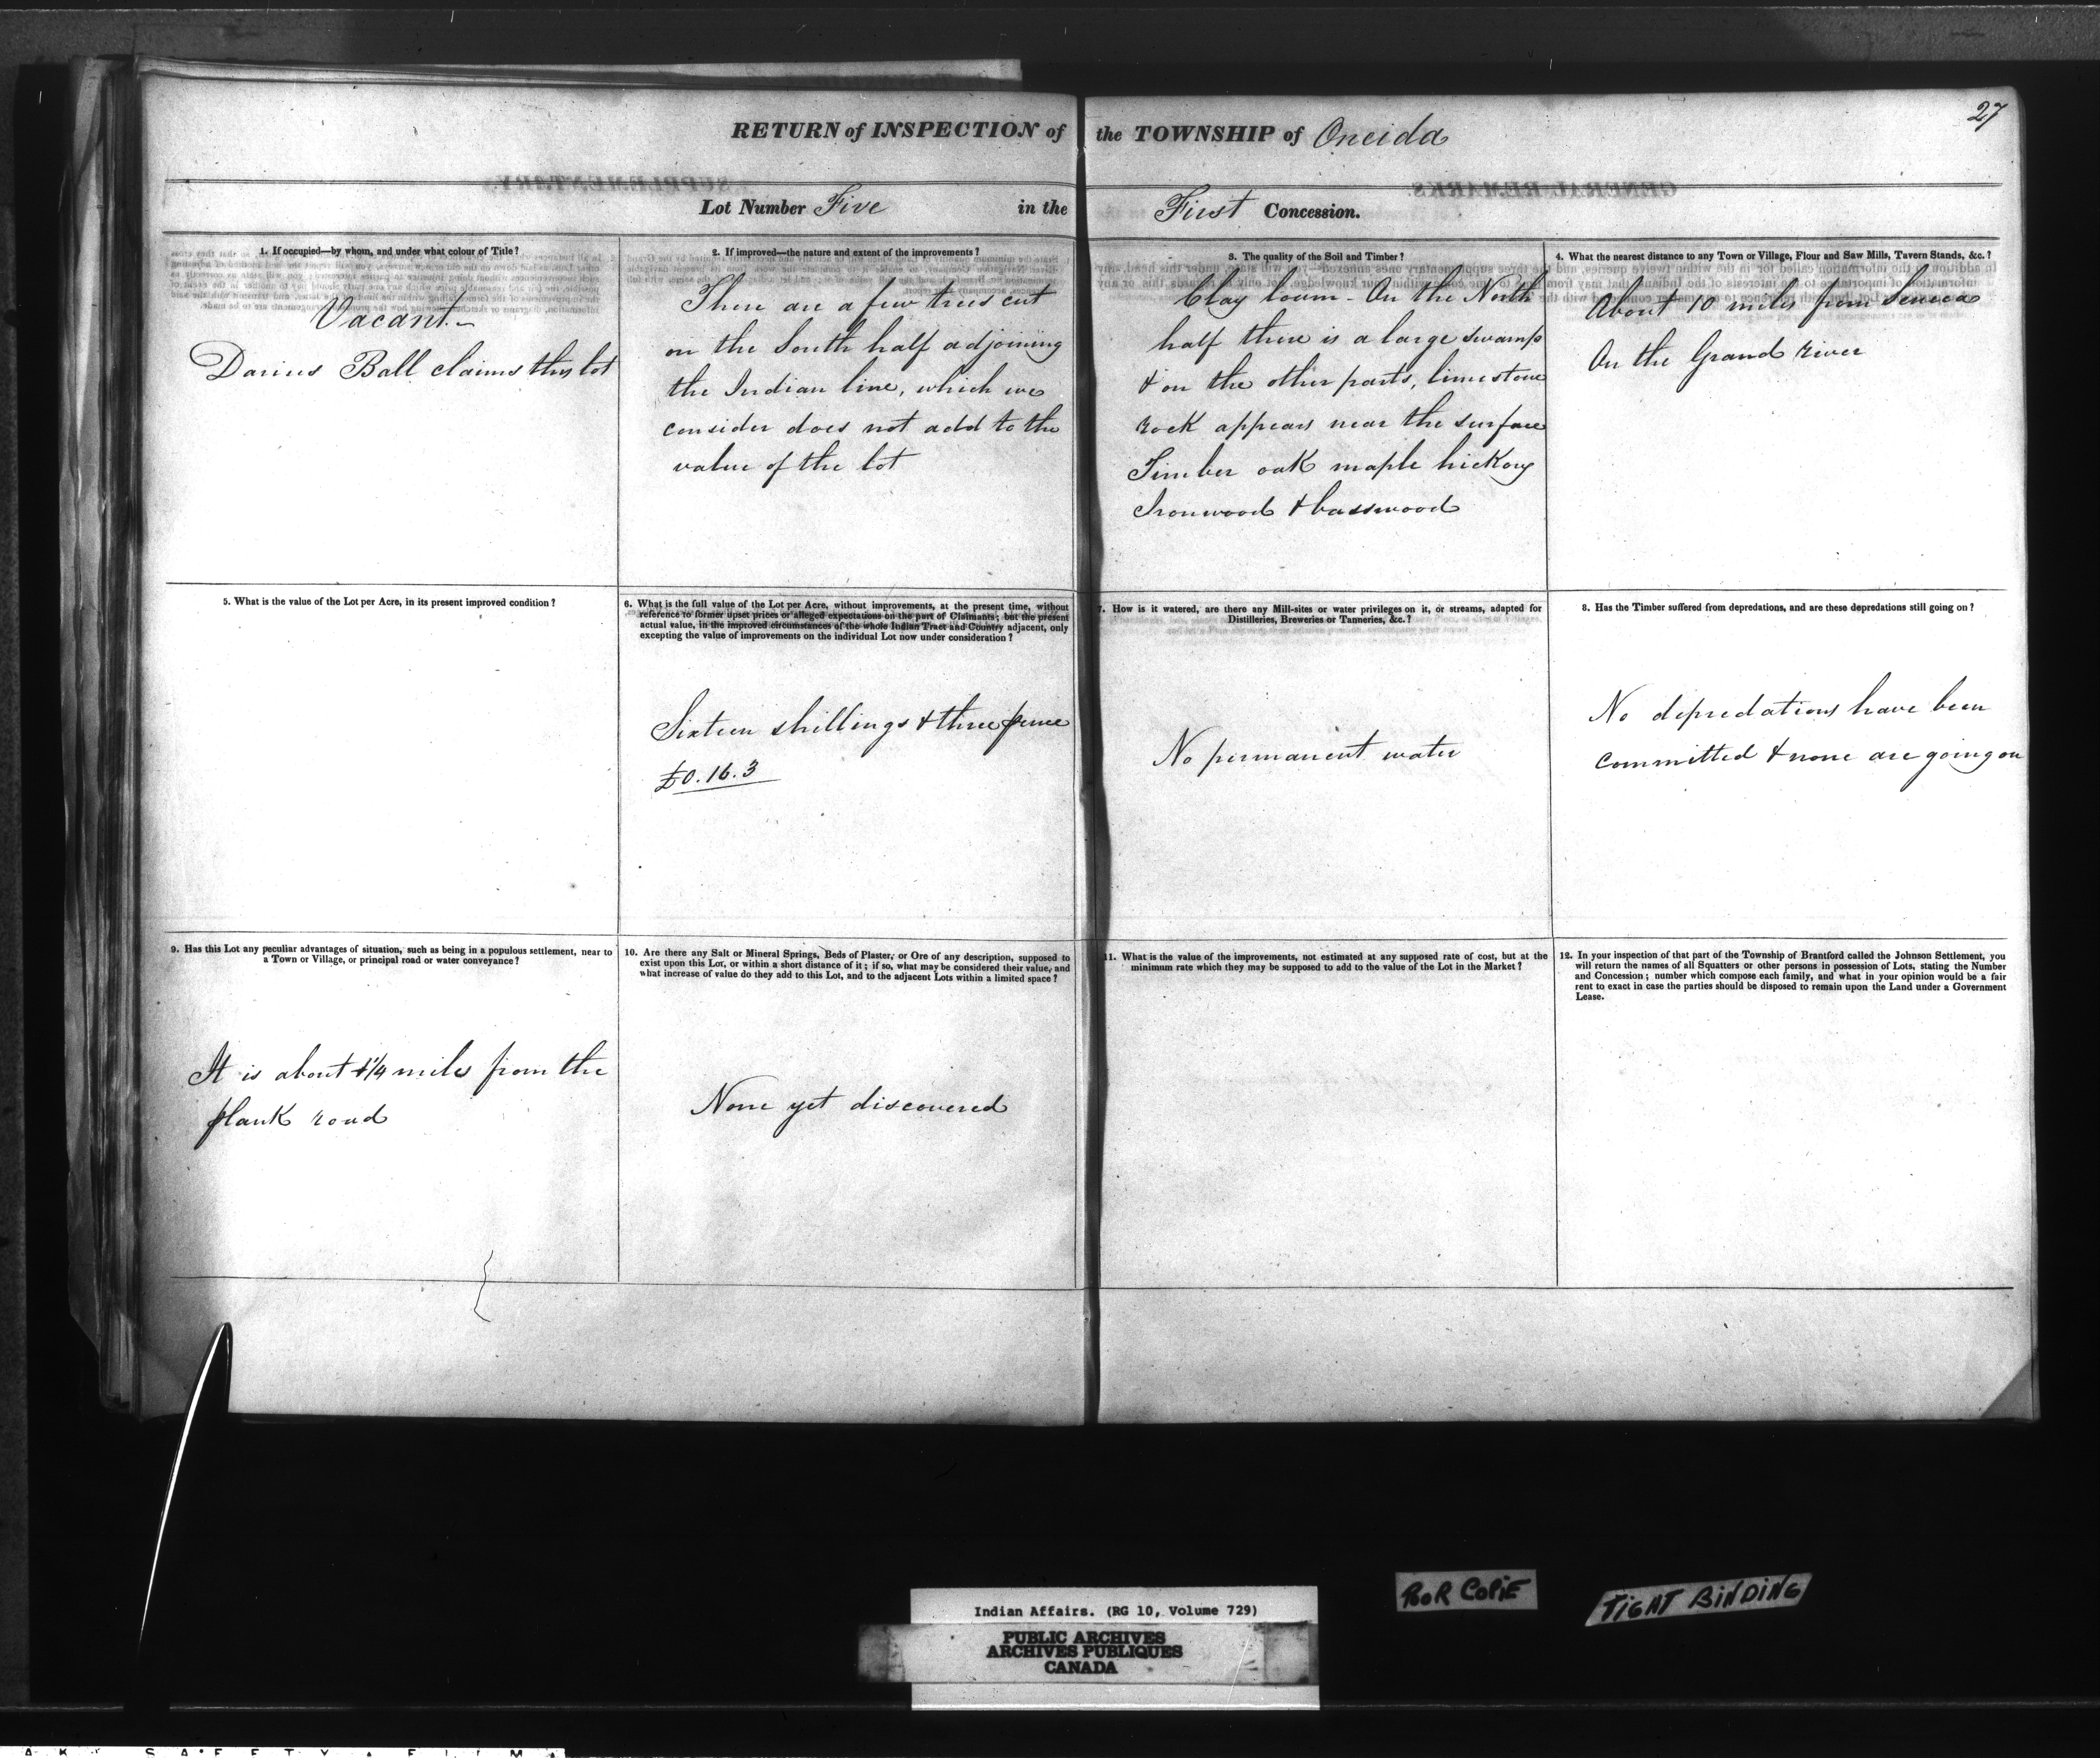 27
RETURN of INSPECTION of the TOWNSHIP of Oneida
Lot Number Five in the First Concession.
1. If occupied—by whom, and under what colour of Title?
Vacant—
Darius Ball claims this lot
2. If improved—the nature and extent of the improvements?
There are a few trees cut
on the South half adjoining
the Indian line, which we
consider does not add to the
value of the lot
3. The quality of the Soil and Timber?
Clay loam - On the North
half there is a large swamp
& on the other parts, limestone
rock appears near the surface
Timber oak maple hickory
Ironwood & basswood
4. What the nearest distance to any Town or Village, Flour and Saw Mills, Tavern Stands, &c.?
About 10 miles from Seneca
On the Grand River
5. What is the value of the Lot per Acre, in its present improved condition?
6. What is the full value of the Lot per Acre, without improvements, at the present time, without
reference to former upset prices or alleged expectations on the part of Claimants; but the present
actual value, in the improved circumstances of the whole Indian Tract and Country adjacent, only
excepting the value of improvements on the individual Lot now under consideration?
Sixteen shillings & three pence
£0.16.3
7. How is it watered, are there any Mill-sites or water privileges on it, or streams, adapted for
Distilleries, Breweries or Tanneries, &c.?
No permanent water
8. Has the Timber suffered from depredations, and are these depredations still going on?
No depredations have been
committed & none are going on
9. Has this Lot any peculiar advantages of situation, such as being in a populous settlement, near to
a Town or Village, or principal road or water conveyance?
It is about miles from the
plank road
10. Are there any Salt or Mineral Springs, Beds of Plaster, or Ore of any description, supposed to
exist upon this Lot, or within a short distance of it; if so, what may be considered their value, and
what increase of value do they add to this Lot, and to the adjacent Lots within a limited space?
None yet discovered
11. What is the value of the improvements, not estimated at any supposed rate of cost, but at the
minimum rate which they may be supposed to add to the value of the Lot in the Market?
12. In your inspection of that part of the Township of Brantford called the Johnson Settlement, you
will return the names of all Squatters or other persons in possession of Lots, stating the Number
and Concession; number which compose each family, and what in your opinion would be a fair
rent to exact in case the parties should be disposed to remain upon the Land under a Government
Lease.
POOR COPIE
TIGHT BINDING
Indian Affairs. (RG 10, Volume 729)
PUBLIC ARCHIVES
ARCHIVES PUBLIQUES
CANADA